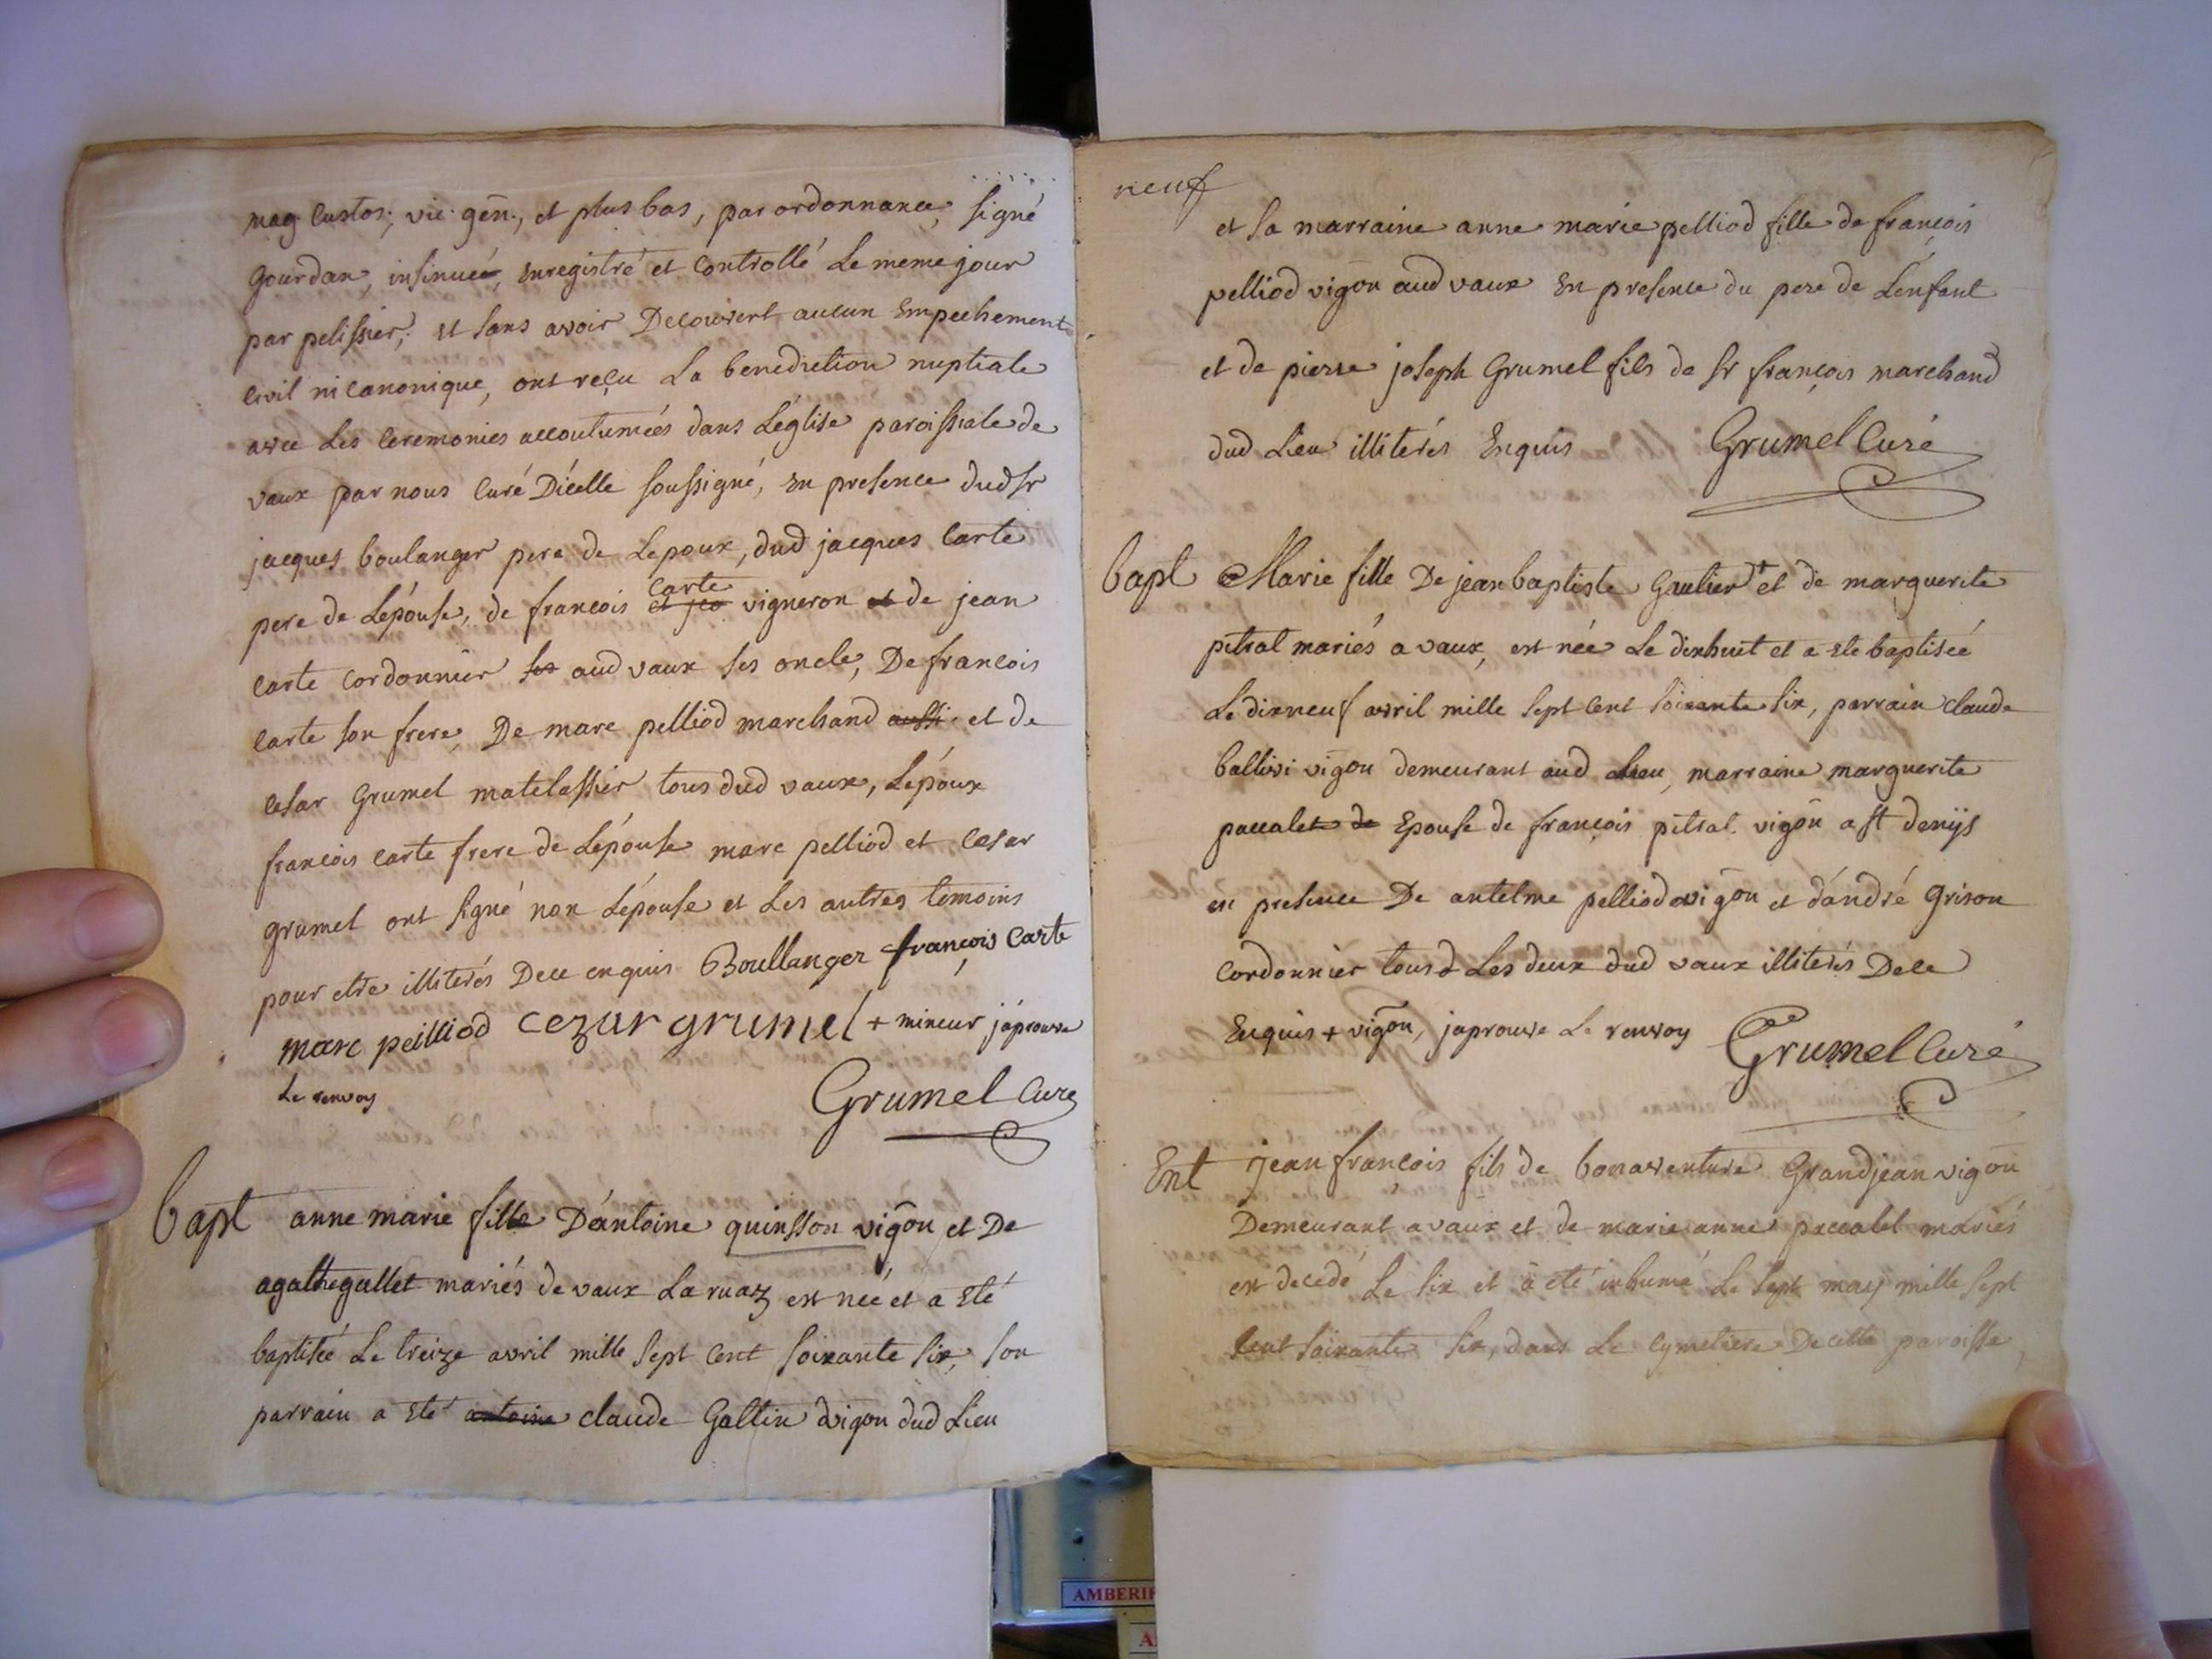 mag. custos, vic. gén., et plus bas, par ordonnance, signé
gourdan, insinueé, enregistré et controllé Le meme jour
par pelissier, et sans avoir Decouvert aucun Empechement
civil ni canonique, ont reçu La benediction nuptiale
avec Les ceremonies accoutumées dans L'église paroissiale de
vaux par nous curé D'icelle soussigné, en presence dud sr
jacques boulanger pere de Lepoux, dud jacques carte
carte
pere de Lépouse, de francois et jea vigneron et de jean
carte cordonnier ses aud vaux ses oncle, De francois
carte son frere, De marc pelliod marchand aussi et de
cesar grumel matelassier tous dud vaux, L'époux
francois carte frere de L'épouse marc pelliod et cesar
grumel ont signé non L'épouse et Les autres temoins
pour etre illiterés Dece enquis Boullanger françois carte
marc pelliod cezar grumel + mineur j'aprouve
Le renvoy
Grumel curé
bapt anne marie fille D'antoine quinsson vigōn et De
agathe gallet mariés de vaux La ruaz est née et a eté
baptisée Le treize avril mille sept cent soixante six, son
parrain a eté antoine claude Galtin vigon dud Lieu
neuf
et sa marraine anne marie pelliod fille de francois
pelliod vigōn aud vaux En presence du pere de L'enfant
et de pierre joseph Grumel fils de sr françois marchand
dud Lieu illiterés Enquis Grumel curé
bapt Marie fille De jean baptiste Gautier + et de marguerite
pitrat mariés a vaux, est née Le dixhuit et a ete baptisée
Le dixneuf avril mille sept cent soixante six, parrain claude
ballivi vigōn demeurant aud Lieu, marraine marguerite
paccalet de Epouse de françois pitrat vigōn a st denijs
en presence De antelme pelliod vigōn et d'andré grison
cordonnier tous d Les deux dud vaux illiterés Dece
Enquis + vigōn, j'aprouve Le renvoy Grumel curé
Ent jean françois fils de bonaventure Grandjean vigōn
Demeurant a vaux et de marie anne paccalet mariés
est decedé Le six et a eté inhumé Le sept may mille sept
cent soixante six, dans Le cymetiere De cette paroisse,
AMBERI
A